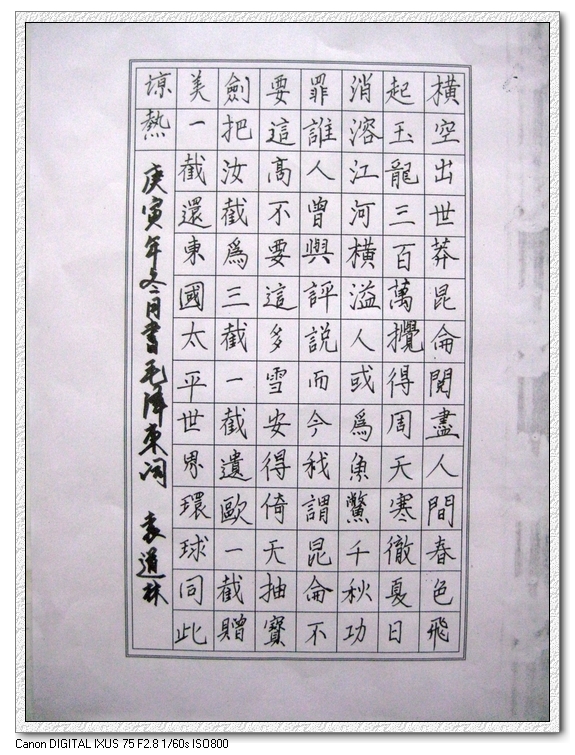 橫空出世莽昆侖閱盡人間春色飛
起玉龍三百萬攪得周天寒徹夏日
消溶江河橫溢人或爲魚鱉千秋功
罪誰人曾與評説而今我謂昆侖不
要這高不要這多雪安得倚天抽寶
劍把汝截爲三截一截遺歐一截贈
美一截還東國太平世界環球同此
凉熱
庚寅年冬月書毛澤東词 袁道林
Canon DIGITAL IXUS 75 F2.8 1/60s ISO800